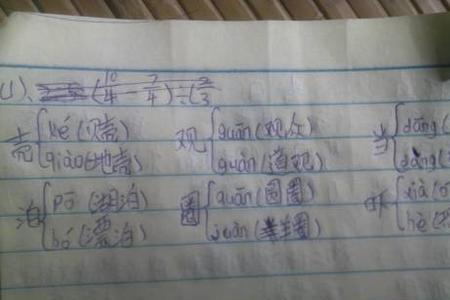 (1)、(10/4 7/4)÷(2/3
壳 ké (贝壳) 观 guān (观众) 当 dāng (
qiào (地壳) guàn (道观) dàng (
泊 pō (湖泊) 圈 quān (圆圈) 吓 xià (
bó (漂泊) juàn (羊圈) hè (